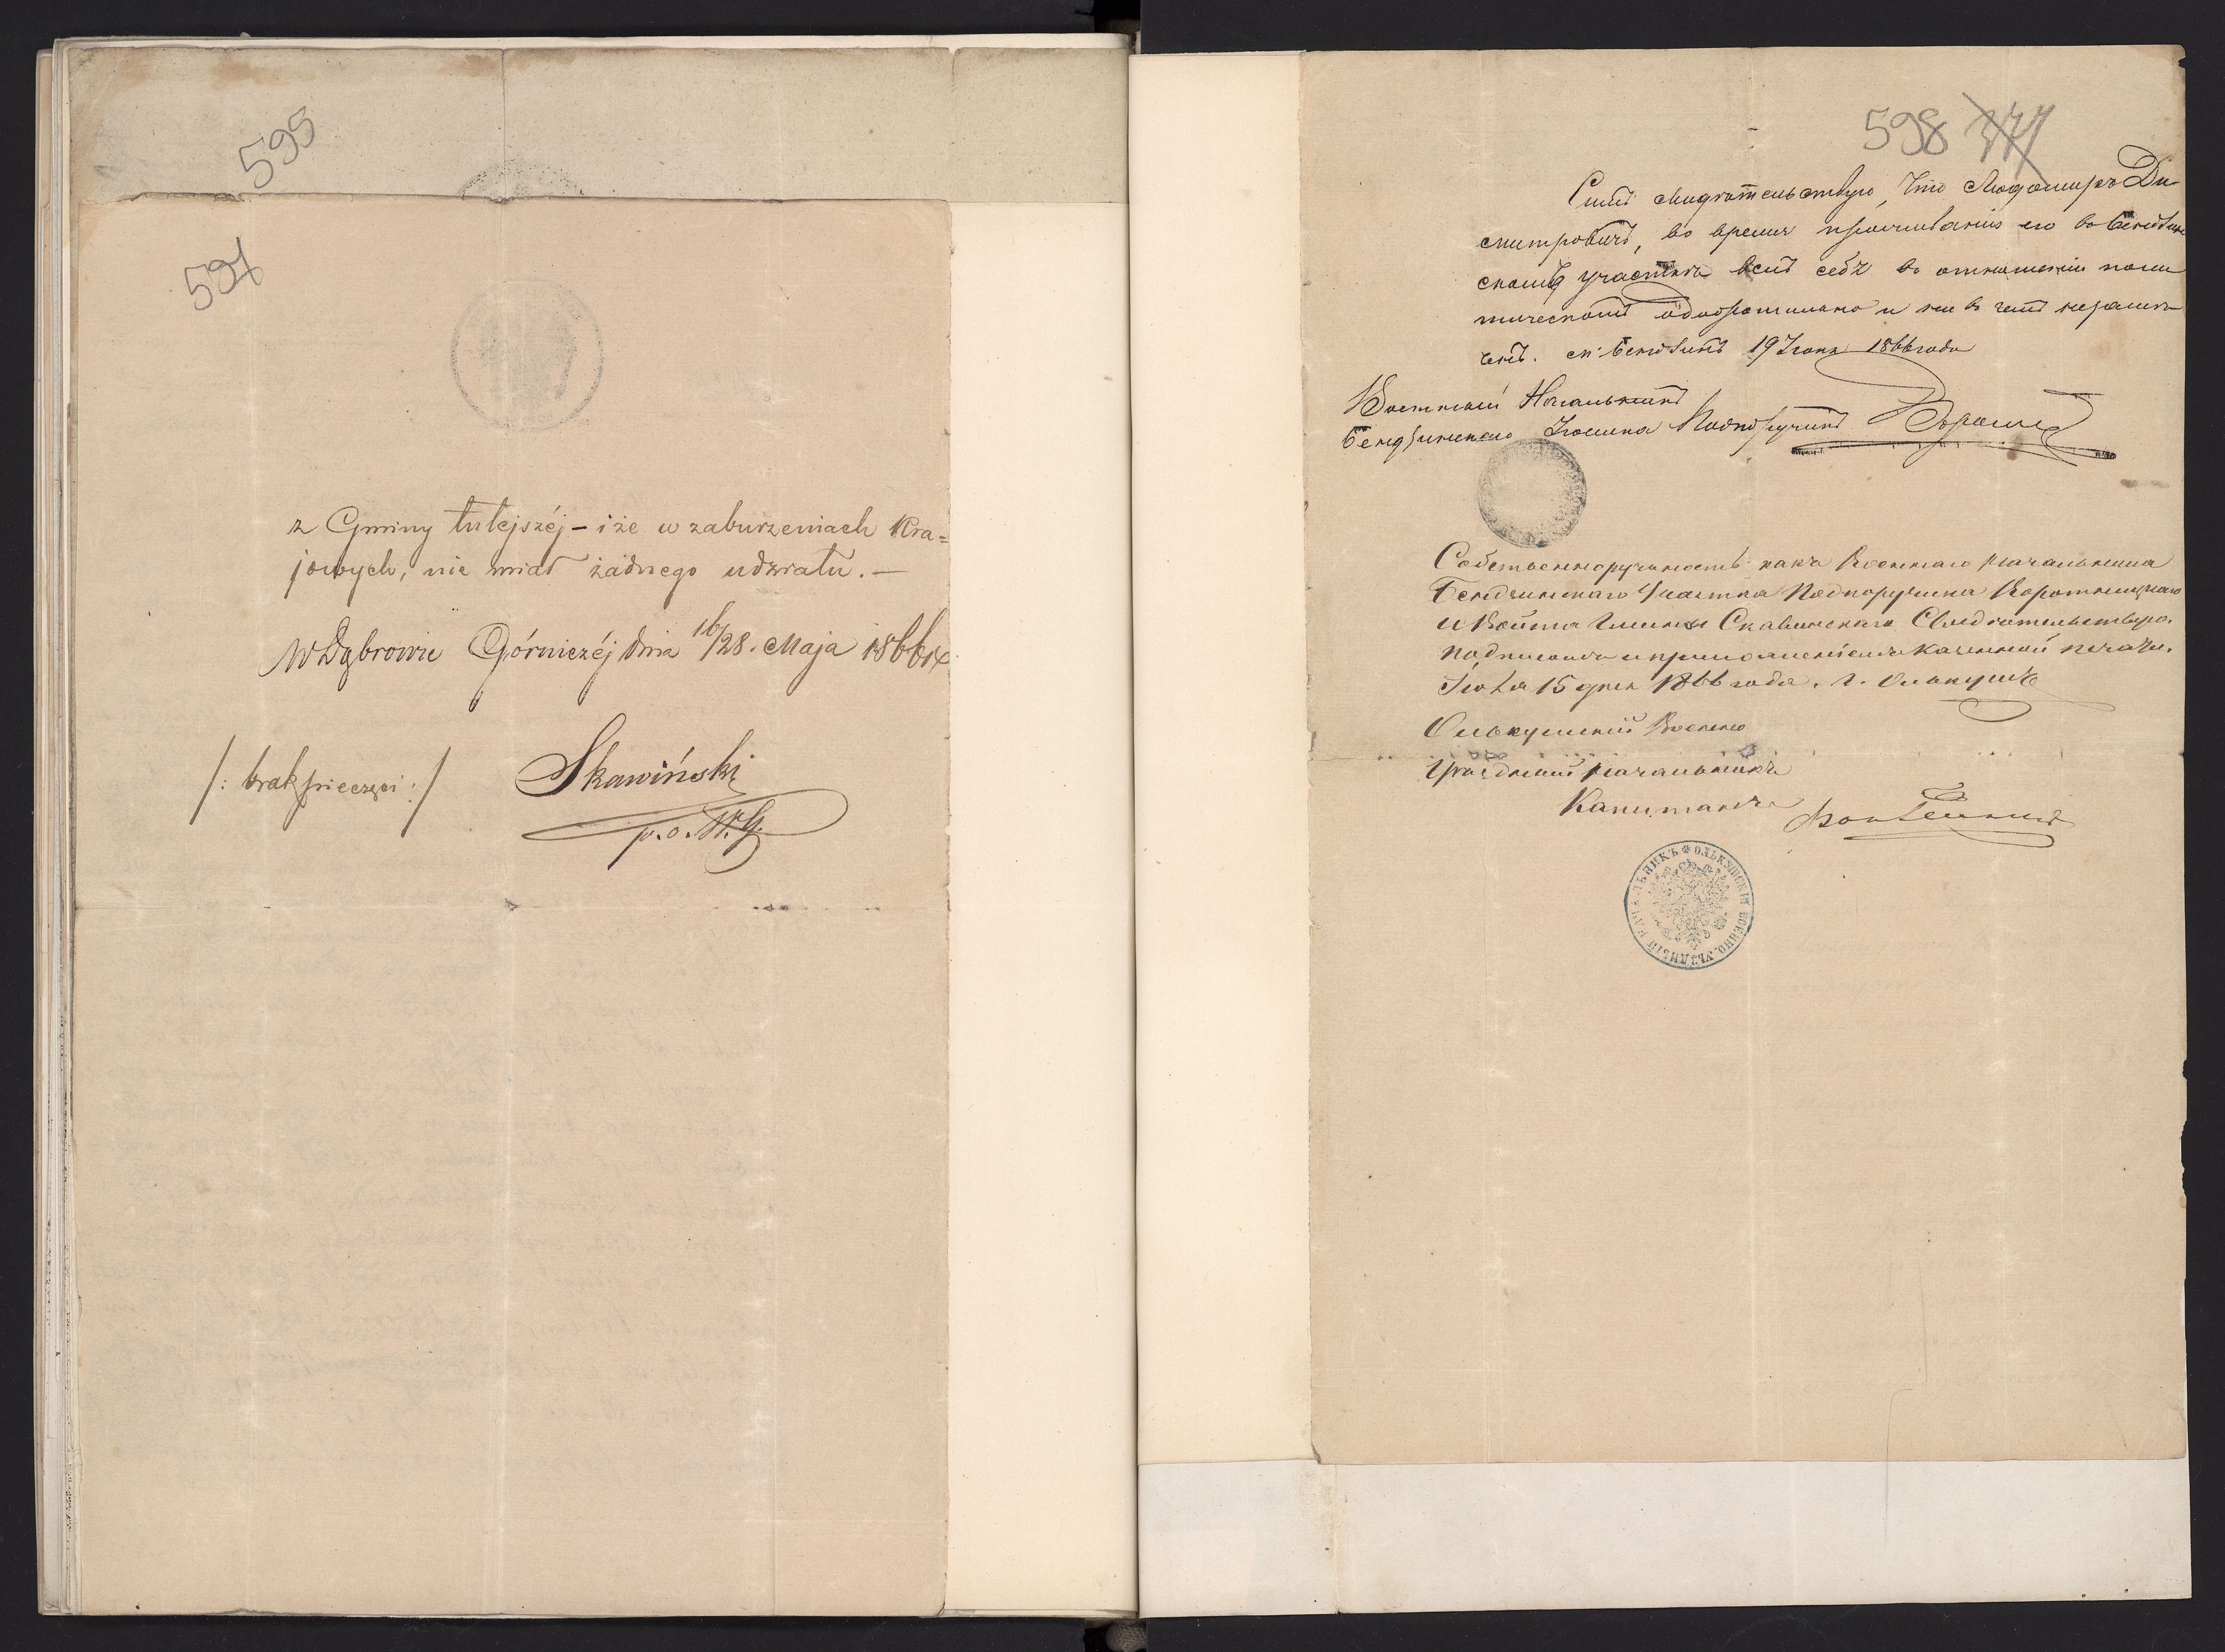 595
597
z Gminy tutejszéj – i że w zaburzeniach Kra=
jowych, nie miał żadnego udziału. –
W Dąbrowie Górniczéj dnia 16/28. Maja 1866 r.
/: brak pieczęci :/
Skawiński
p. o. W. G.
598 377
Симъ свидѣтельствую, что Людомиръ Ди-
митровичъ, во время проживанія его въ Бендзин
скомъ участкѣ велъ себя въ отношеніи поли
тическомъ одобрительно и ни въ чемъ незамѣ
ченъ. Бендзинъ 19 Іюня 1866 года
Военный Начальникъ
Бендзинскаго Подпоручикъ
Собственноручность какъ Военнаго Начальника
Бендзинскаго Участка Подпоручика
и Войта Гмины Скавинскаго Свидѣтельствую
подписомъ и приложеніемъ казенной печати.
15 дня 1866 года. г. Олькушъ
Олькушскій Военно
Уѣздный Начальникъ
Капитанъ
ОЛЬКУШСКІЙ ВОЕННО-УѢЗДНЫЙ НАЧАЛЬНИКЪ